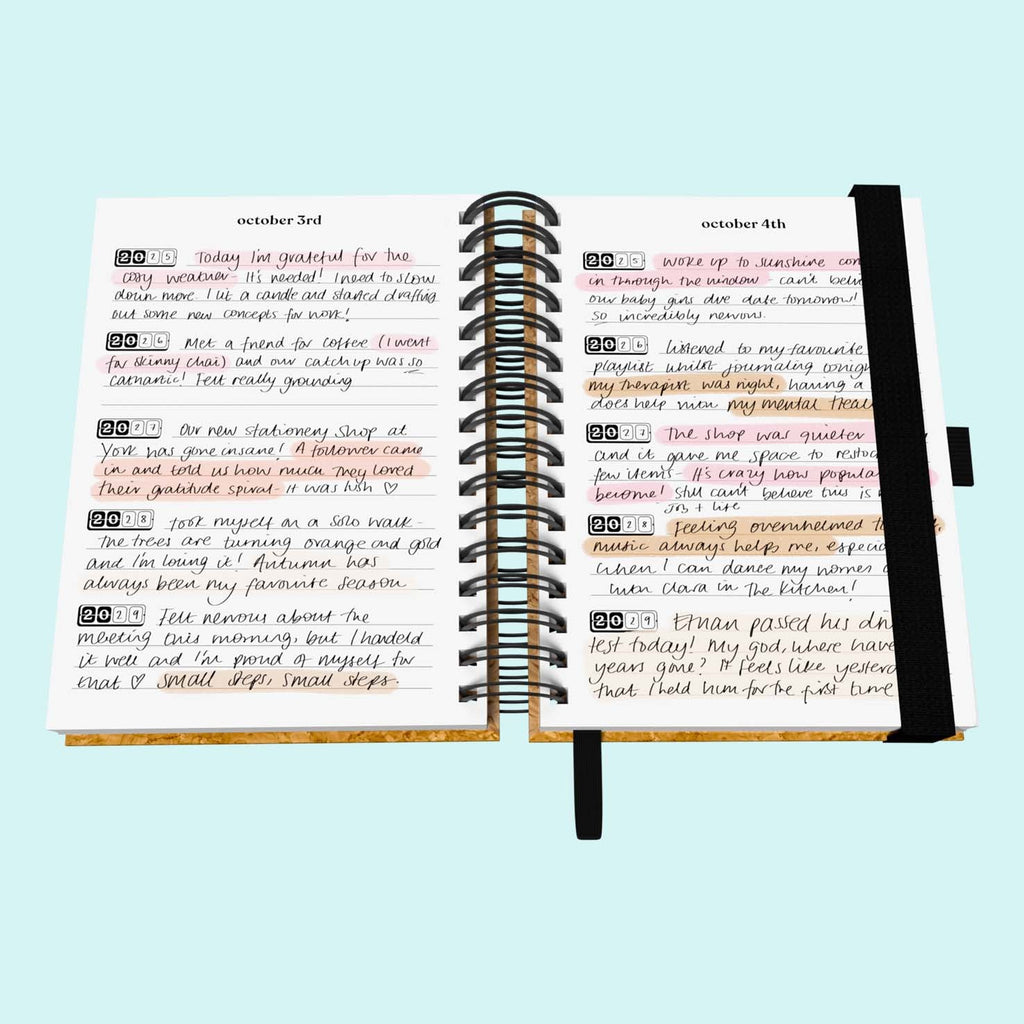 october 3rd
2025 Today I'm grateful for the
cosy weather - It's needed! I need to slow
down more. I lit a candle and started drafting
out some new concepts for work!
2026 Met a friend for coffee (I went
for skinny chai) and our catch up was so
cathartic! Felt really grounding
2027 Our new stationery shop at
York has gone insane! A follower came
in and told us how much they loved
their gratitude spiral - it was lush ♡
2028 Took myself on a solo walk -
The trees are turning orange and gold
and I'm loving it! Autumn has
always been my favourite season
2029 Felt nervous about the
meeting this morning, but I handeld
it well and I'm proud of myself for
that ♡ small steps, small steps.
october 4th
2025 Woke up to sunshine
in through the window - can't
our baby girls due date tomorrow!
so incredibly nervous.
2026 listened to my favourite
playlist whilst journaling
my therapist was right, having a
does help with my mental
2027 The shop was quieter
and it gave me space to
few items - It's crazy how
become! Still can't believe this is
job + life
2028 Feeling overwhelmed
music always helps me,
when I can dance my worries
with Clara in the kitchen!
2029 Ethan passed his
test today! My god, where have
years gone? It feels like
that I held him for the first time